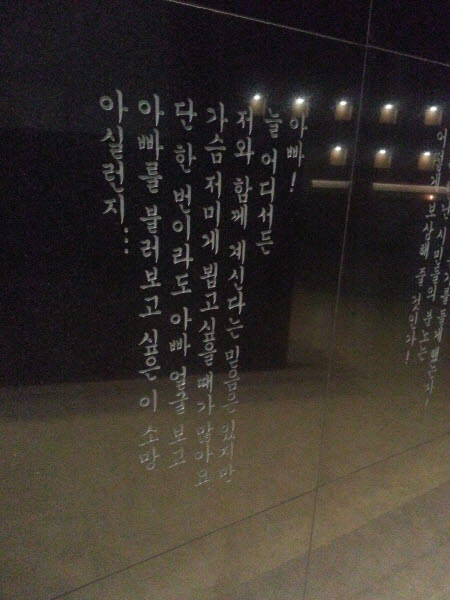 시민들의 분노는
보상해 줄 것인가!
아빠!
늘 어디서든
저와 함께 계신다는 믿음은 있지만
가슴 저미게 뵙고 싶을 때가 많아요
단 한 번이라도 아빠 얼굴 보고
아빠를 불러보고 싶은 이 소망
아실런지...